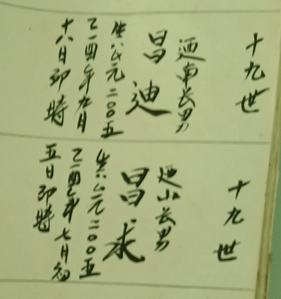 十九世
迺南长男
昌迪
生公元二00五
乙酉年九月
十八日卯時
十九世
迺山长男
昌
生公元二00五
乙酉年七月初
五日卯時